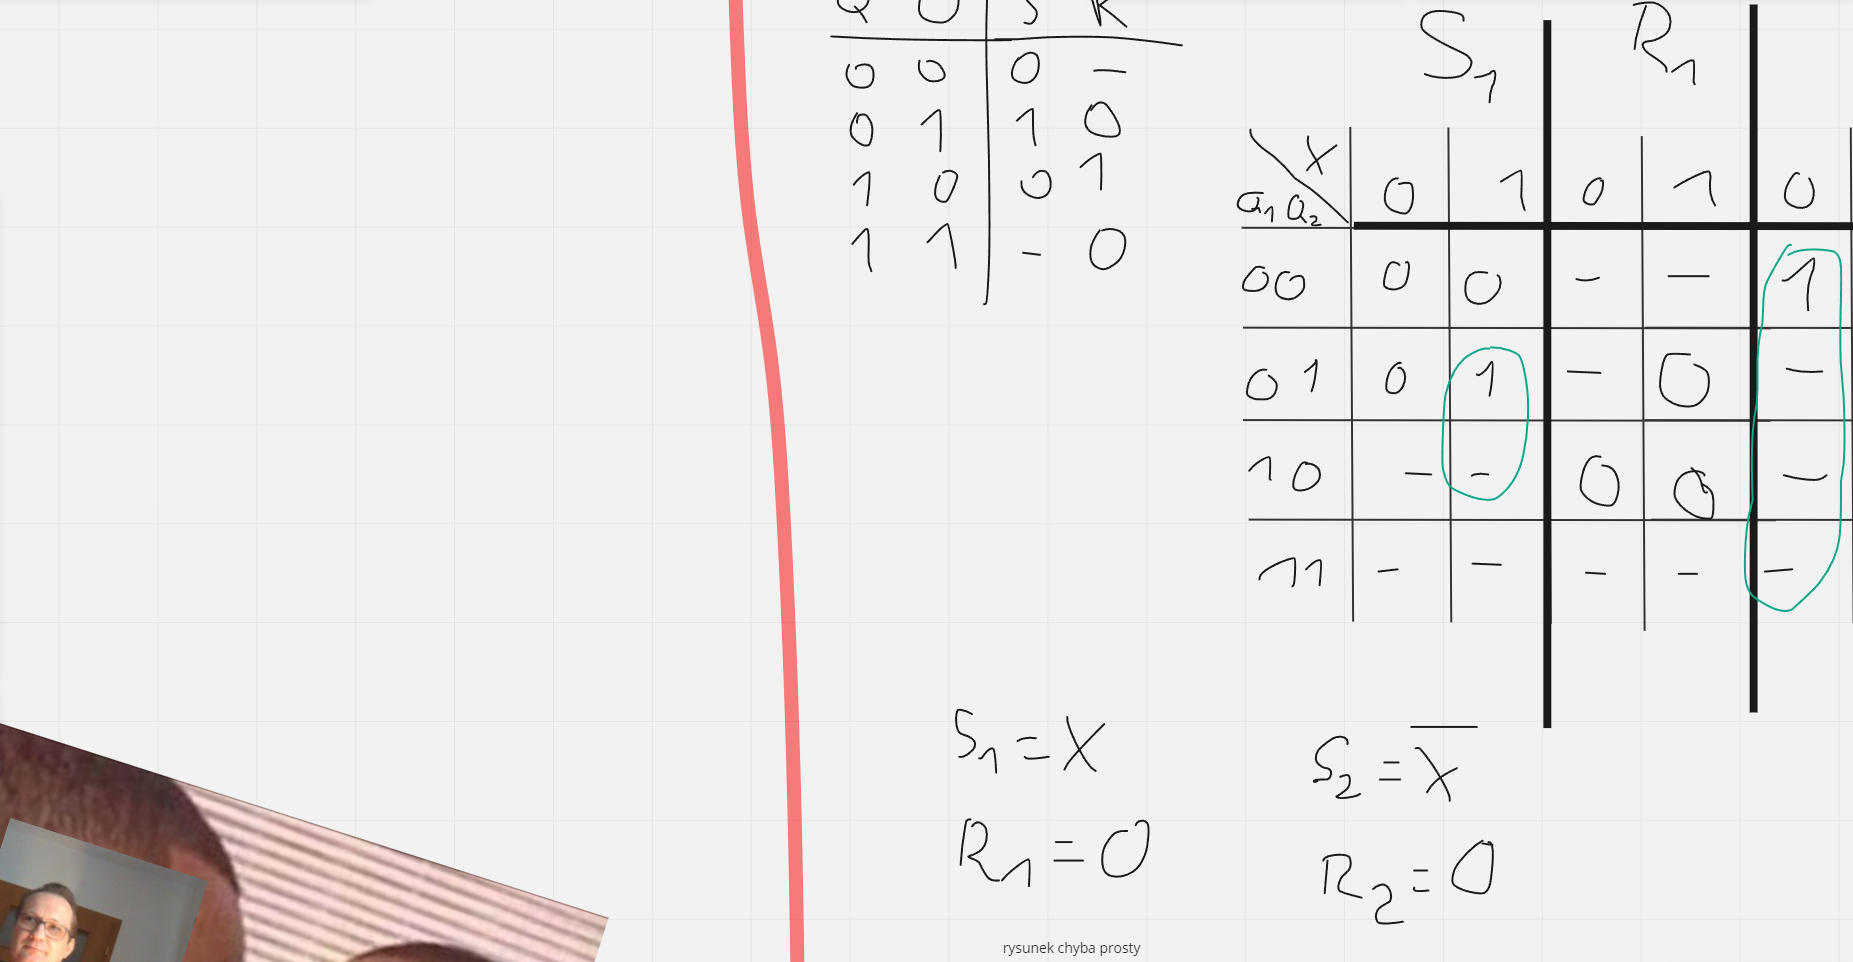 Q Q S R
0 0 0 -
0 1 1 0
1 0 0 1
1 1 - 0
S1 R1
X 0 1 0 1 0
Q1 Q2
00 0 0 - - 1
01 0 1 - 0 -
10 - - 0 0 -
11 - - - - -
S1 = X
R1 = 0
S2 = X̅
R2 = 0
rysunek chyba prosty